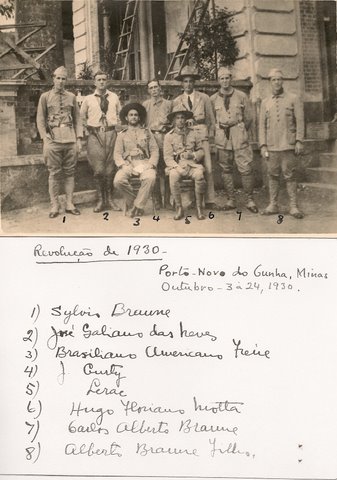 1 2 3 4 5 6 7 8
Revolução de 1930-
Porto-Novo do Cunha, Minas
Outubro-3 à 24, 1930.
1) Sylvio Braune
2) José Galiano das Neves
3) Brasiliano Americano Freire
4) J. Curty
5)
6) Hugo Floriano Motta
7) Carlos Alberto Braune
8) Alberto Braune Filho.